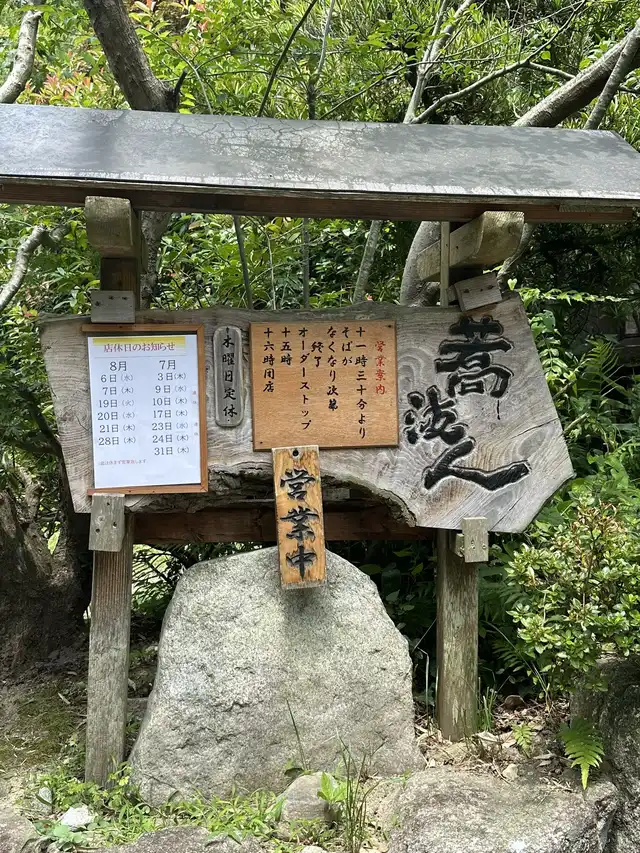 蕎法人
営業案内
十一時三十分より
そばが
なくなり次第
終了
オーダーストップ
十五時
十六時閉店
営業中
木曜日定休
店休日のお知らせ
7月
3日(木)
9日(水)
10日(木)
17日(木)
23日(水)
24日(木)
31日(木)
8月
6日(水)
7日(木)
19日(火)
20日(水)
21日(木)
28日(木)